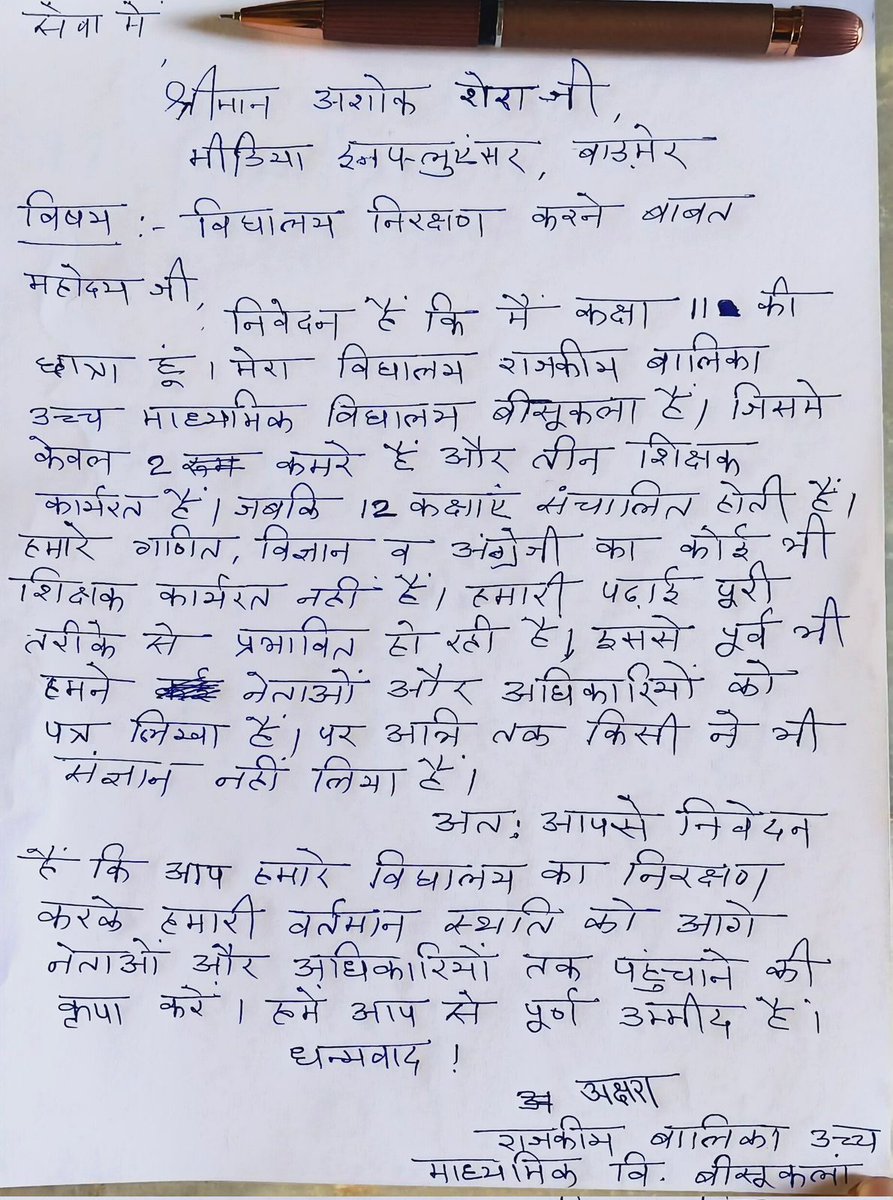 सेवा में,
श्रीमान अशोक शेरा जी,
मीडिया इनफ्लुएंसर, बाड़मेर
विषय :- विद्यालय निरक्षण करने बाबत
महोदय जी,
निवेदन हैं कि मैं कक्षा 11 की
छात्रा हूं। मेरा विद्यालय राजकीय बालिका
उच्च माध्यमिक विद्यालय बीसूकला हैं। जिसमे
केवल 2 कमरे हैं और तीन शिक्षक
कार्यरत हैं। जबकि 12 कक्षाएं संचालित होती हैं।
हमारे गणित, विज्ञान व अंग्रेजी का कोई भी
शिक्षक कार्यरत नहीं हैं। हमारी पढ़ाई पूरी
तरीके से प्रभावित हो रही हैं, इससे पूर्व भी
हमने नेताओं और अधिकारियों को
पत्र लिखा हैं। पर आज तक किसी ने भी
संज्ञान नहीं लिया हैं।
अत: आपसे निवेदन
हैं कि आप हमारे विद्यालय का निरक्षण
करके हमारी वर्तमान स्थति को आगे
नेताओं और अधिकारियों तक पंहुचाने की
कृपा करें। हमें आप से पूर्ण उम्मीद हैं।
धन्यवाद !
अक्षरा
राजकीय बालिका उच्च
माध्यमिक वि. बीसूकलां